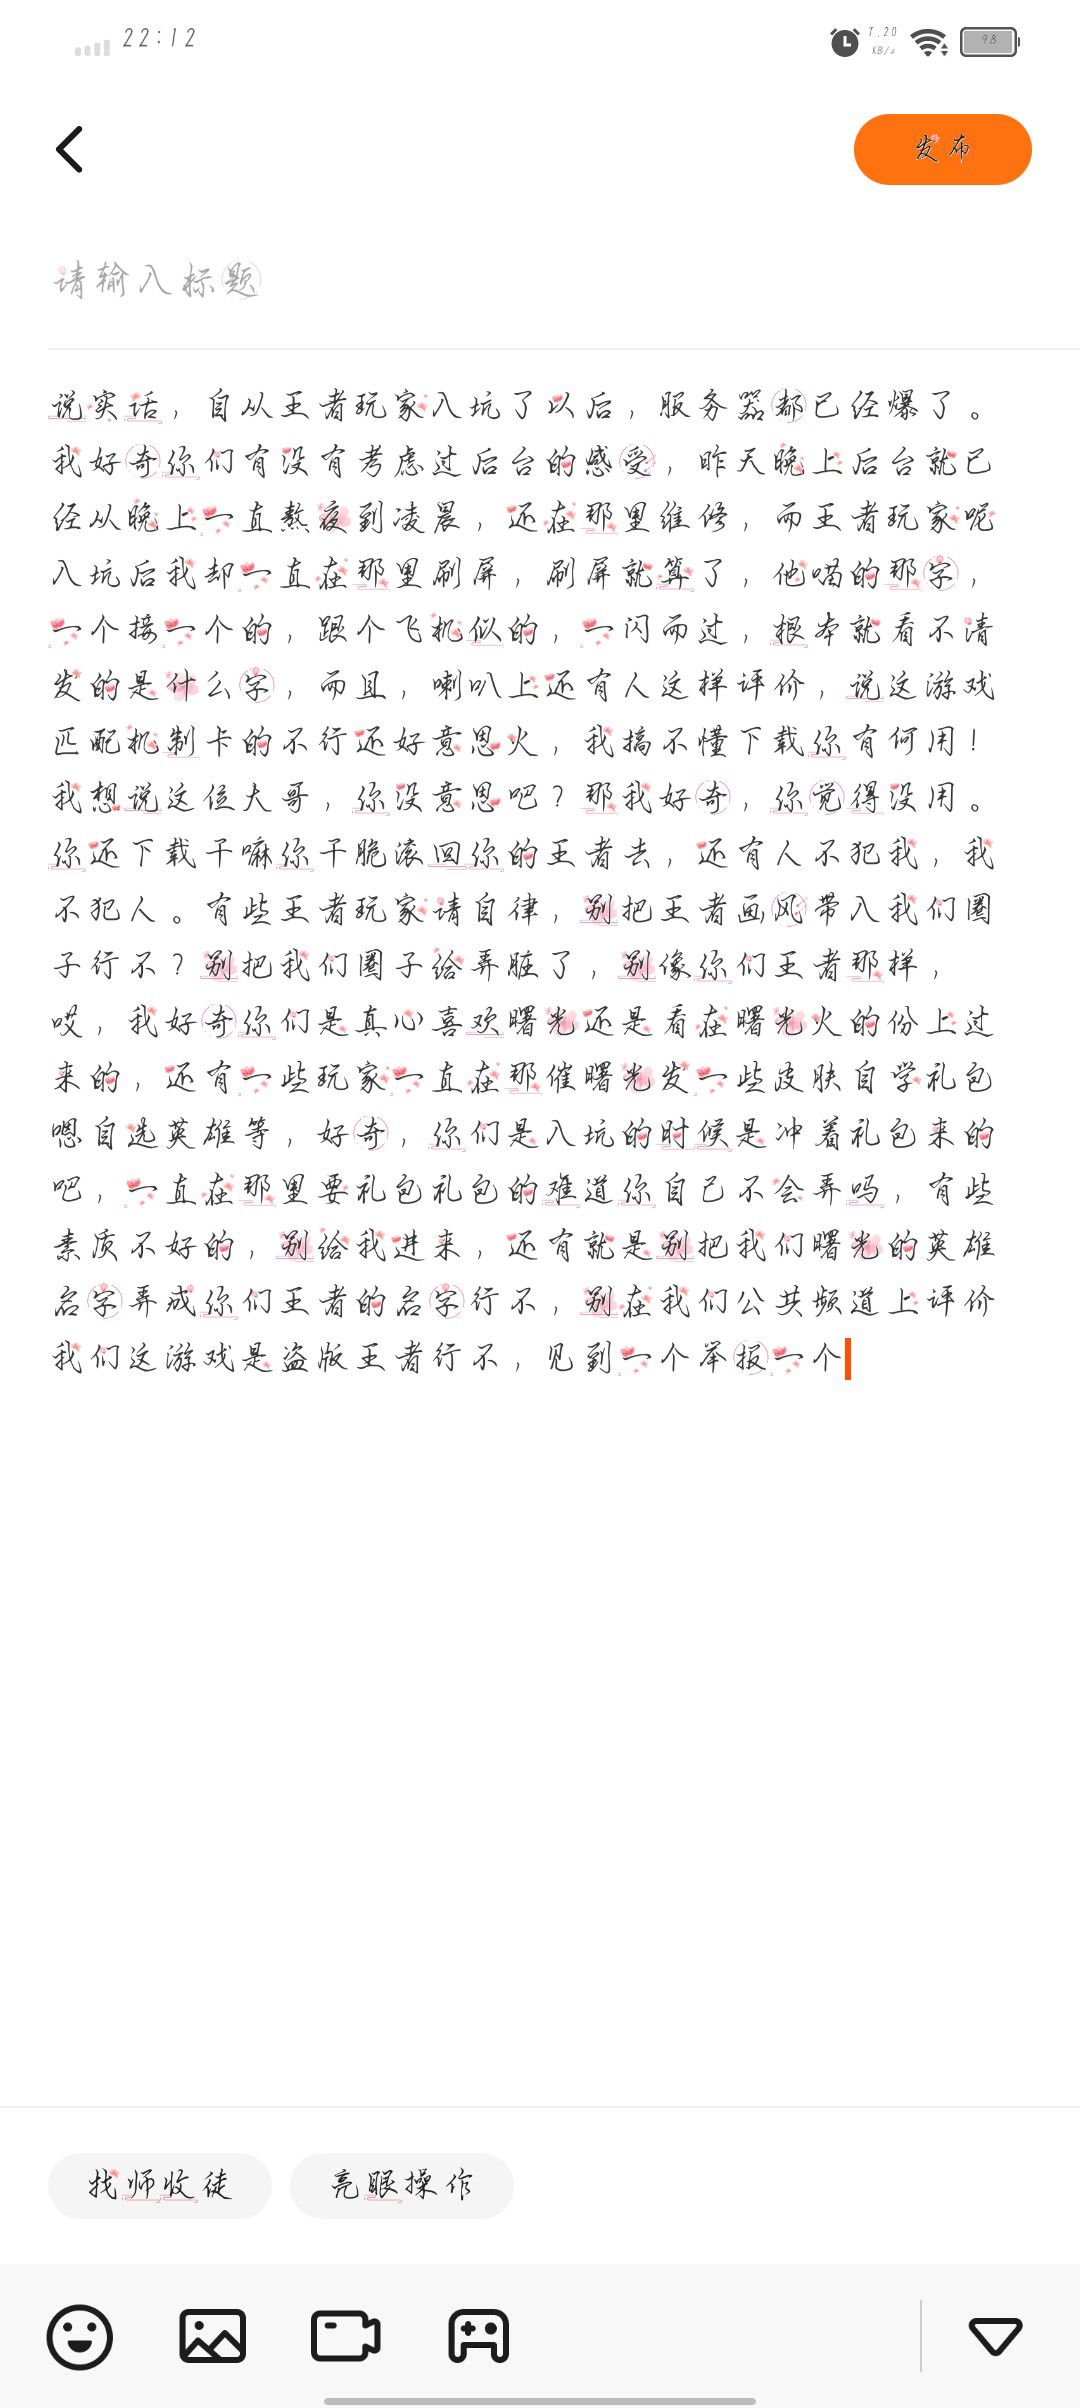 22:12
7.20
KB/s
98
发布
请输入标题
说实话，自从王者玩家入坑了以后，服务器都已经爆了。
我好奇你们有没有考虑过后台的感受，昨天晚上后台就已
经从晚上一直熬夜到凌晨，还在那里维修，而王者玩家呢
入坑后我却一直在那里刷屏，刷屏就算了，他喵的那字，
一个接一个的，跟个飞机似的，一闪而过，根本就看不清
发的是什么字，而且，喇叭上还有人这样评价，说这游戏
匹配机制卡的不行还好意思火，我搞不懂下载你有何用！
我想说这位大哥，你没意思吧？那我好奇，你觉得没用。
你还下载干嘛你干脆滚回你的王者去，还有人不犯我，我
不犯人。有些王者玩家请自律，别把王者画风带入我们圈
子行不？别把我们圈子给弄脏了，别像你们王者那样，
哎，我好奇你们是真心喜欢曙光还是看在曙光火的份上过
来的，还有一些玩家一直在那催曙光发一些皮肤自学礼包
嗯自选英雄等，好奇，你们是入坑的时候是冲着礼包来的
吧，一直在那里要礼包礼包的难道你自己不会弄吗，有些
素质不好的，别给我进来，还有就是别把我们曙光的英雄
名字弄成你们王者的名字行不，别在我们公共频道上评价
我们这游戏是盗版王者行不，见到一个举报一个
找师收徒
亮眼操作